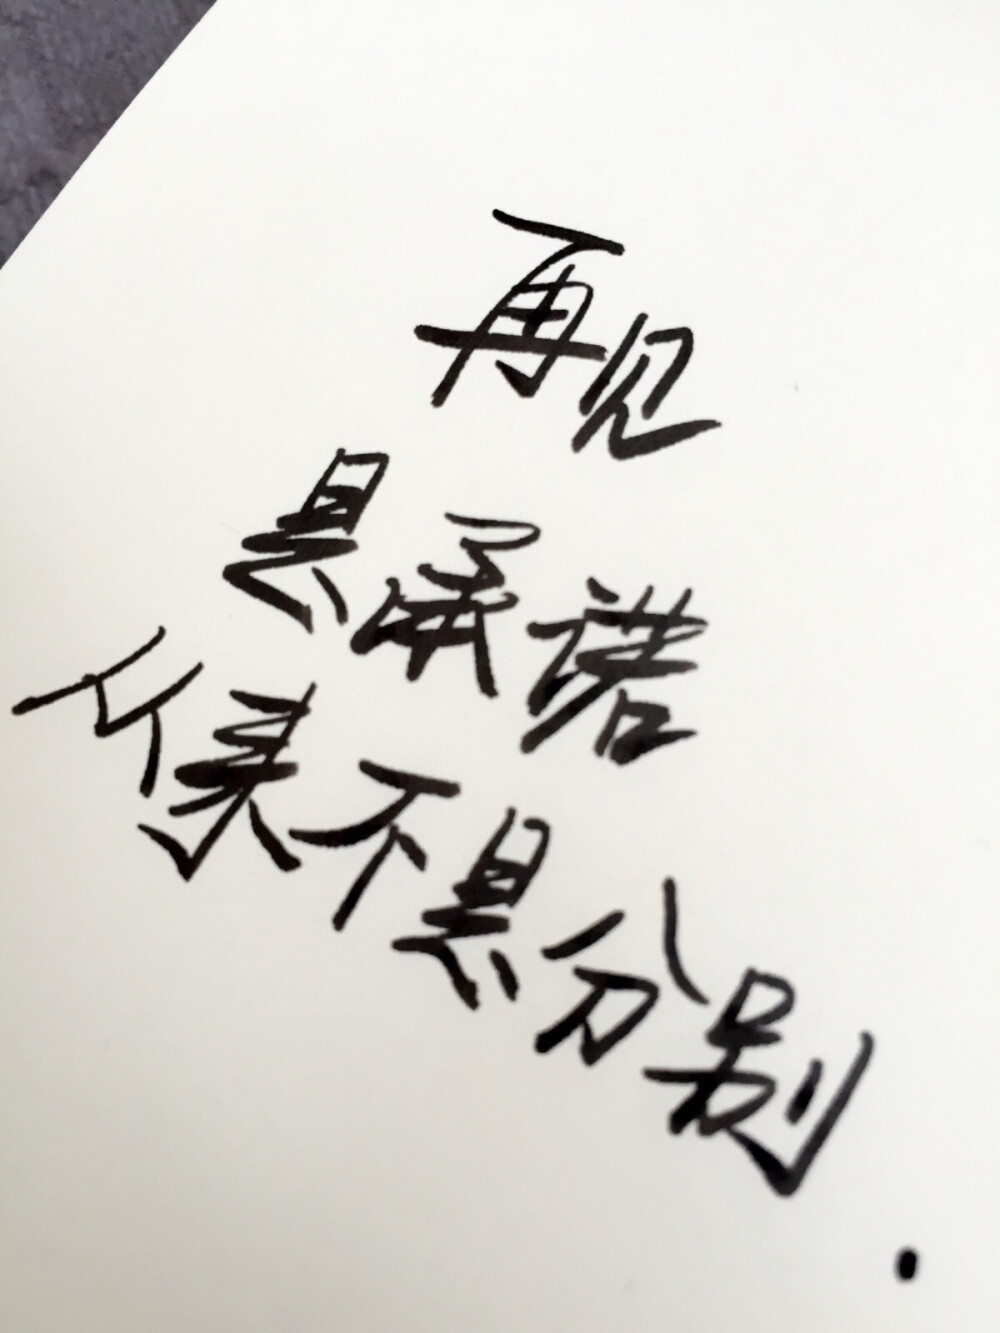 再见
是承诺
从来不是分别.